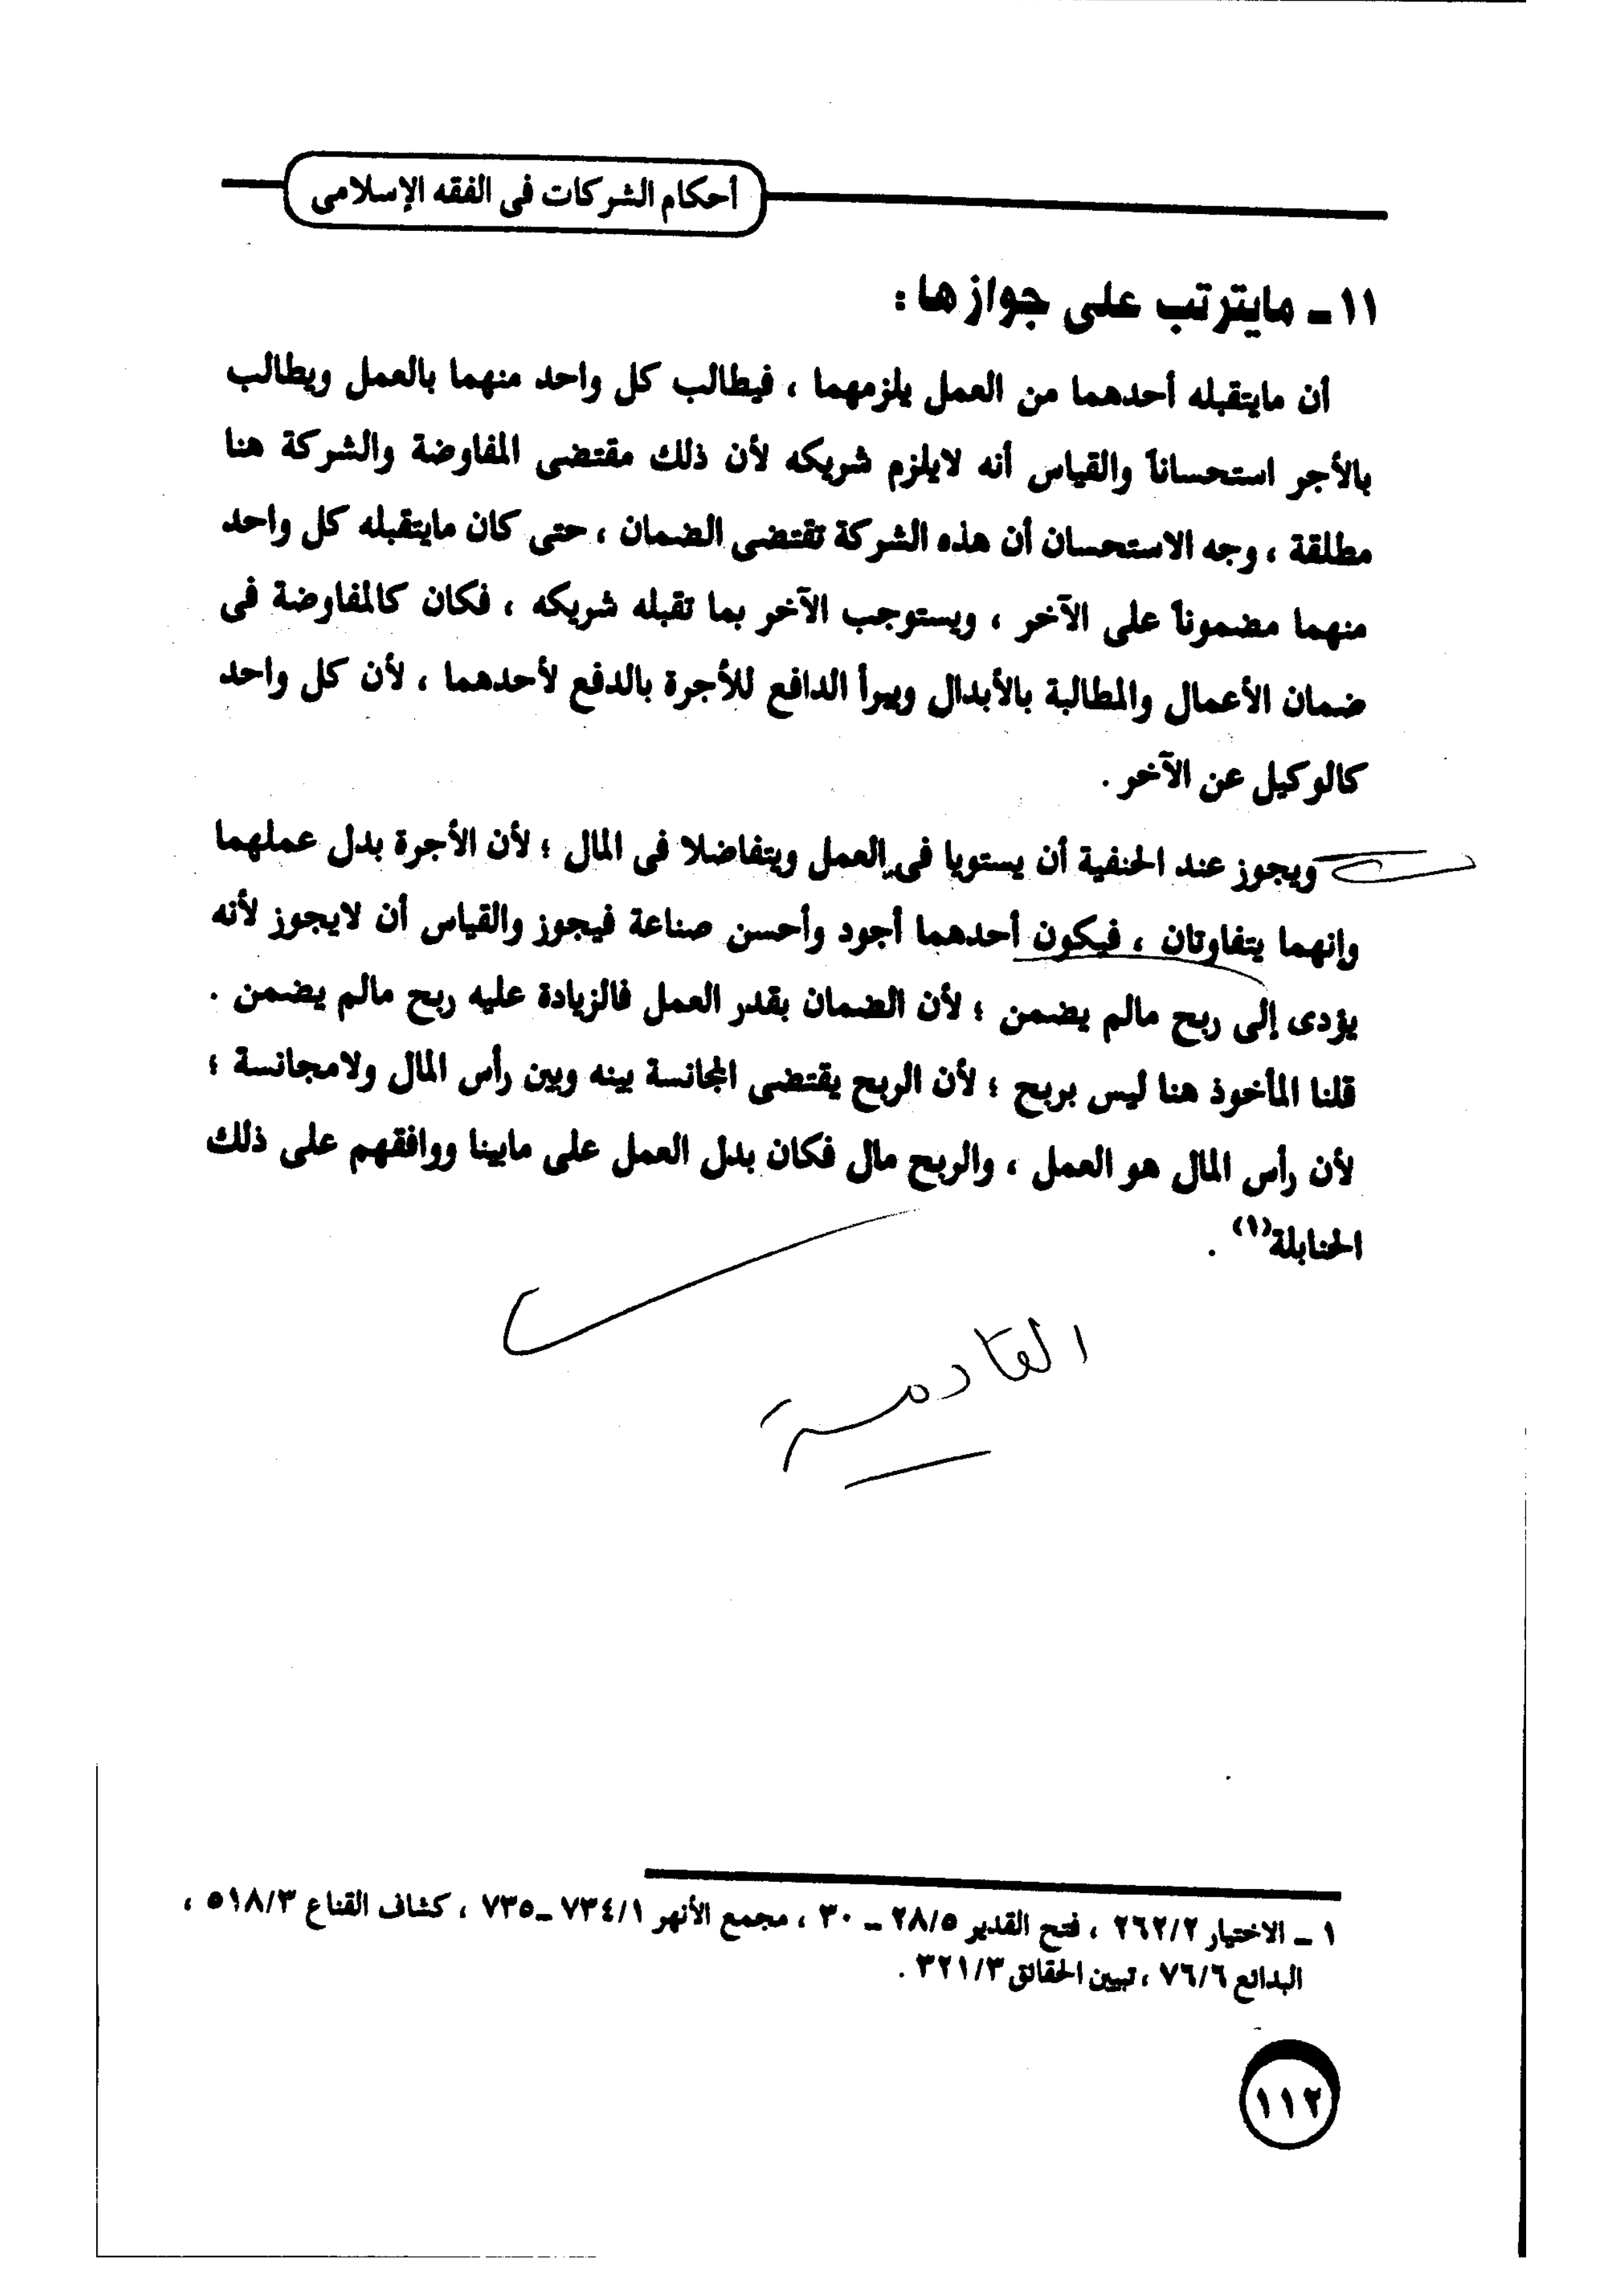 أحكام الشركات فى الفقه الإسلامى
١١ ـ مايترتب على جوازها :
أن مايتقبله أحدهما من العمل يلزمهما ، فيطالب كل واحد منهما بالعمل ويطالب
بالأجر استحساناً والقياس أنه لايلزم شريكه لأن ذلك مقتضى المفاوضة والشركة هنا
مطلقة ، وجه الاستحسان أن هذه الشركة تقتضى الضمان ، حتى كان مايتقبله كل واحد
منهما مضموناً على الآخر ، ويستوجب الآخر بما تقبله شريكه ، فكان كالمفاوضة فى
ضمان الأعمال والمطالبة بالأبدال ويبرأ الدافع للأجرة بالدفع لأحدهما ، لأن كل واحد
كالوكيل عن الآخر .
ويجوز عند الحنفية أن يستويا فى العمل ويتفاضلا فى المال ؛ لأن الأجرة بدل عملهما
وإنهما يتفاوتان ، فيكون أحدهما أجود وأحسن صناعة فيجوز والقياس أن لايجوز لأنه
يؤدى إلى ربح مالم يضمن ؛ لأن الضمان بقدر العمل فالزيادة عليه ربح مالم يضمن .
قلنا المأخوذ هنا ليس بربح ؛ لأن الربح يقتضى المجانسة بينه وبين رأس المال ولامجانسة ؛
لأن رأس المال هو العمل ، والربح مال فكان بدل العمل على مابينا ووافقهم على ذلك
الحنابلة(١) .
القادمة
١ ـ الاختيار ٢٦٢/٢ ، فتح القدير ٢٨/٥ ـ ٣٠ ، مجمع الأنهر ٧٣٤/١ ـ٧٣٥ ، كشاف القناع ٥١٨/٣ ،
البدائع ٧٦/٦ ، تبيين الحقائق ٣٢١/٣ .
١١٢